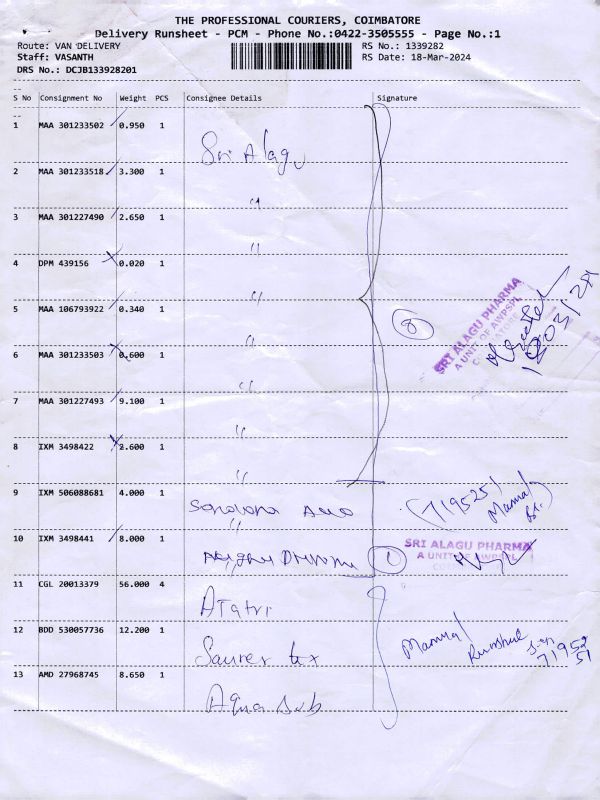 THE PROFESSIONAL COURIERS, COIMBATORE
Delivery Runsheet - PCM - Phone No.:0422-3505555 - Page No.:1
Route: VAN DELIVERY
RS No.: 1339282
Staff: VASANTH
RS Date: 18-Mar-2024
DRS No.: DCJB133928201
S No Consignment No Weight PCS Consignee Details Signature
1 MAA 301233502 0.950 1 Sri Alagu
2 MAA 301233518 3.300 1 "
3 MAA 301227490 2.650 1 "
4 DPM 439156 0.020 1 "
5 MAA 106793922 0.340 1 "
6 MAA 301233503 0.600 1 "
7 MAA 301227493 9.100 1 "
8 IXM 3498422 2.600 1 "
8
SRI ALAGU PHARMA
A UNIT OF AWPSPL
9 IXM 506088681 4.000 1
719525
Manual
10 IXM 3498441 8.000 1 "
1
SRI ALAGU PHARMA
A UNIT OF AWPSPL
11 CGL 20013379 56.000 4
12 BDD 530057736 12.200 1
Manual
Runsheet
13 AMD 27968745 8.650 1 Aqua Sub